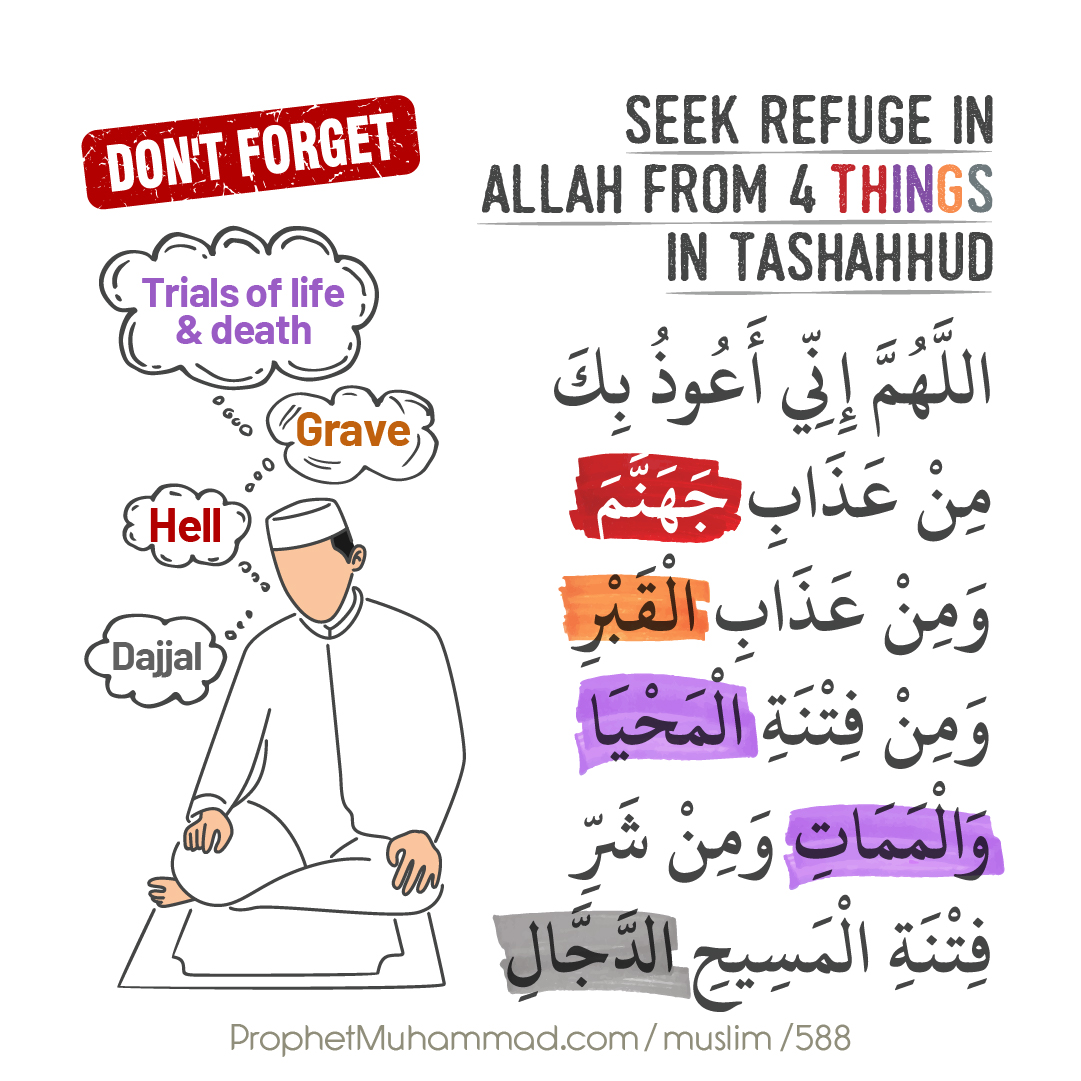 DON'T FORGET
SEEK REFUGE IN
ALLAH FROM 4 THINGS
IN TASHAHHUD
Trials of life
& death
Grave
Hell
Dajjal
اللَّهُمَّ إِنِّي أَعُوذُ بِكَ
مِنْ عَذَابِ جَهَنَّمَ
وَمِنْ عَذَابِ الْقَبْرِ
وَمِنْ فِتْنَةِ الْمَحْيَا
وَالْمَمَاتِ وَمِنْ شَرِّ
فِتْنَةِ الْمَسِيحِ الدَّجَّالِ
ProphetMuhammad.com / muslim /588